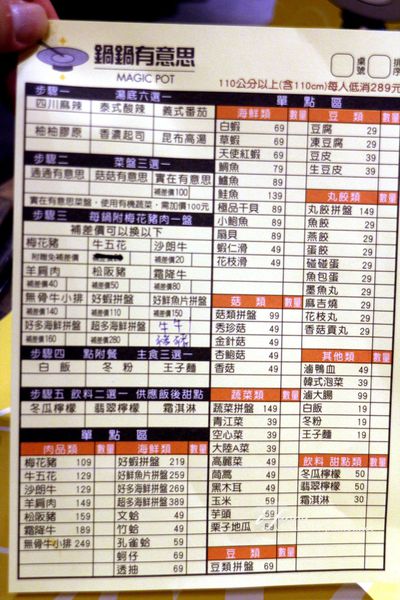 鍋鍋有意思
MAGIC POT
桌號
排序
110公分以上(含110cm)每人低消289元
步驟一 湯底六選一
四川麻辣 泰式酸辣 義式番茄
柚柚膠原 香濃起司 昆布高湯
步驟二 菜盤三選一
通通有意思 菇菇有意思 實在有意思
補差價100
實在有意思菜盤,使用有機蔬菜,需加價100元
步驟三 每鍋附梅花豬肉一盤
補差價可以換以下
梅花豬 牛五花 沙朗牛
附贈免補差價 補差價20
羊肩肉 松阪豬 霜隆牛
補差價40 補差價50 補差價80
無骨牛小排 好蝦拼盤 好鮮魚片拼盤
補差價140 補差價110 補差價150
好多海鮮拼盤 超多海鮮拼盤 牛牛
補差價160 補差價280 豬豬
步驟四 點附餐 主食三選一
白飯 冬粉 王子麵
步驟五 飲料二選一 供應飯後甜點
冬瓜檸檬 翡翠檸檬 霜淇淋
單點區
肉品類 數量 海鮮類 數量
梅花豬 109 好蝦拼盤 219
牛五花 129 好鮮魚片拼盤 259
沙朗牛 129 好多海鮮拼盤 269
羊肩肉 149 超多海鮮拼盤 389
松阪豬 159 文蛤 49
霜隆牛 189 竹蛤 49
無骨牛小排 249 孔雀蛤 59
蚵仔 59
透抽 69
單點區
海鮮類 數量
白蝦 69
草蝦 69
天使紅蝦 69
鯛魚 79
鱸魚 89
鮭魚 89
極品干貝 89
小鮑魚 89
扇貝 89
蝦仁滑 49
花枝滑 49
菇類 數量
菇類拼盤 99
秀珍菇 49
金針菇 49
杏鮑菇 49
香菇 49
蔬菜類 數量
蔬菜拼盤 149
青江菜 39
空心菜 39
大陸A菜 39
高麗菜 49
茼蒿 49
黑木耳 49
玉米 59
芋頭 59
栗子地瓜 59
豆類 數量
豆類拼盤 69
豆類 數量
豆腐 29
凍豆腐 29
豆皮 39
生豆皮 39
丸餃類 數量
丸餃拼盤 149
魚餃 29
燕餃 29
蛋餃 29
碰碰蛋 29
魚包蛋 29
墨魚丸 29
麻吉燒 29
花枝丸 29
香菇貢丸 29
其他類 數量
滷鴨血 49
韓式泡菜 39
滷大腸 99
白飯 19
冬粉 19
王子麵 19
飲料 甜點類 數量
冬瓜檸檬 50
翡翠檸檬 50
霜淇淋 30